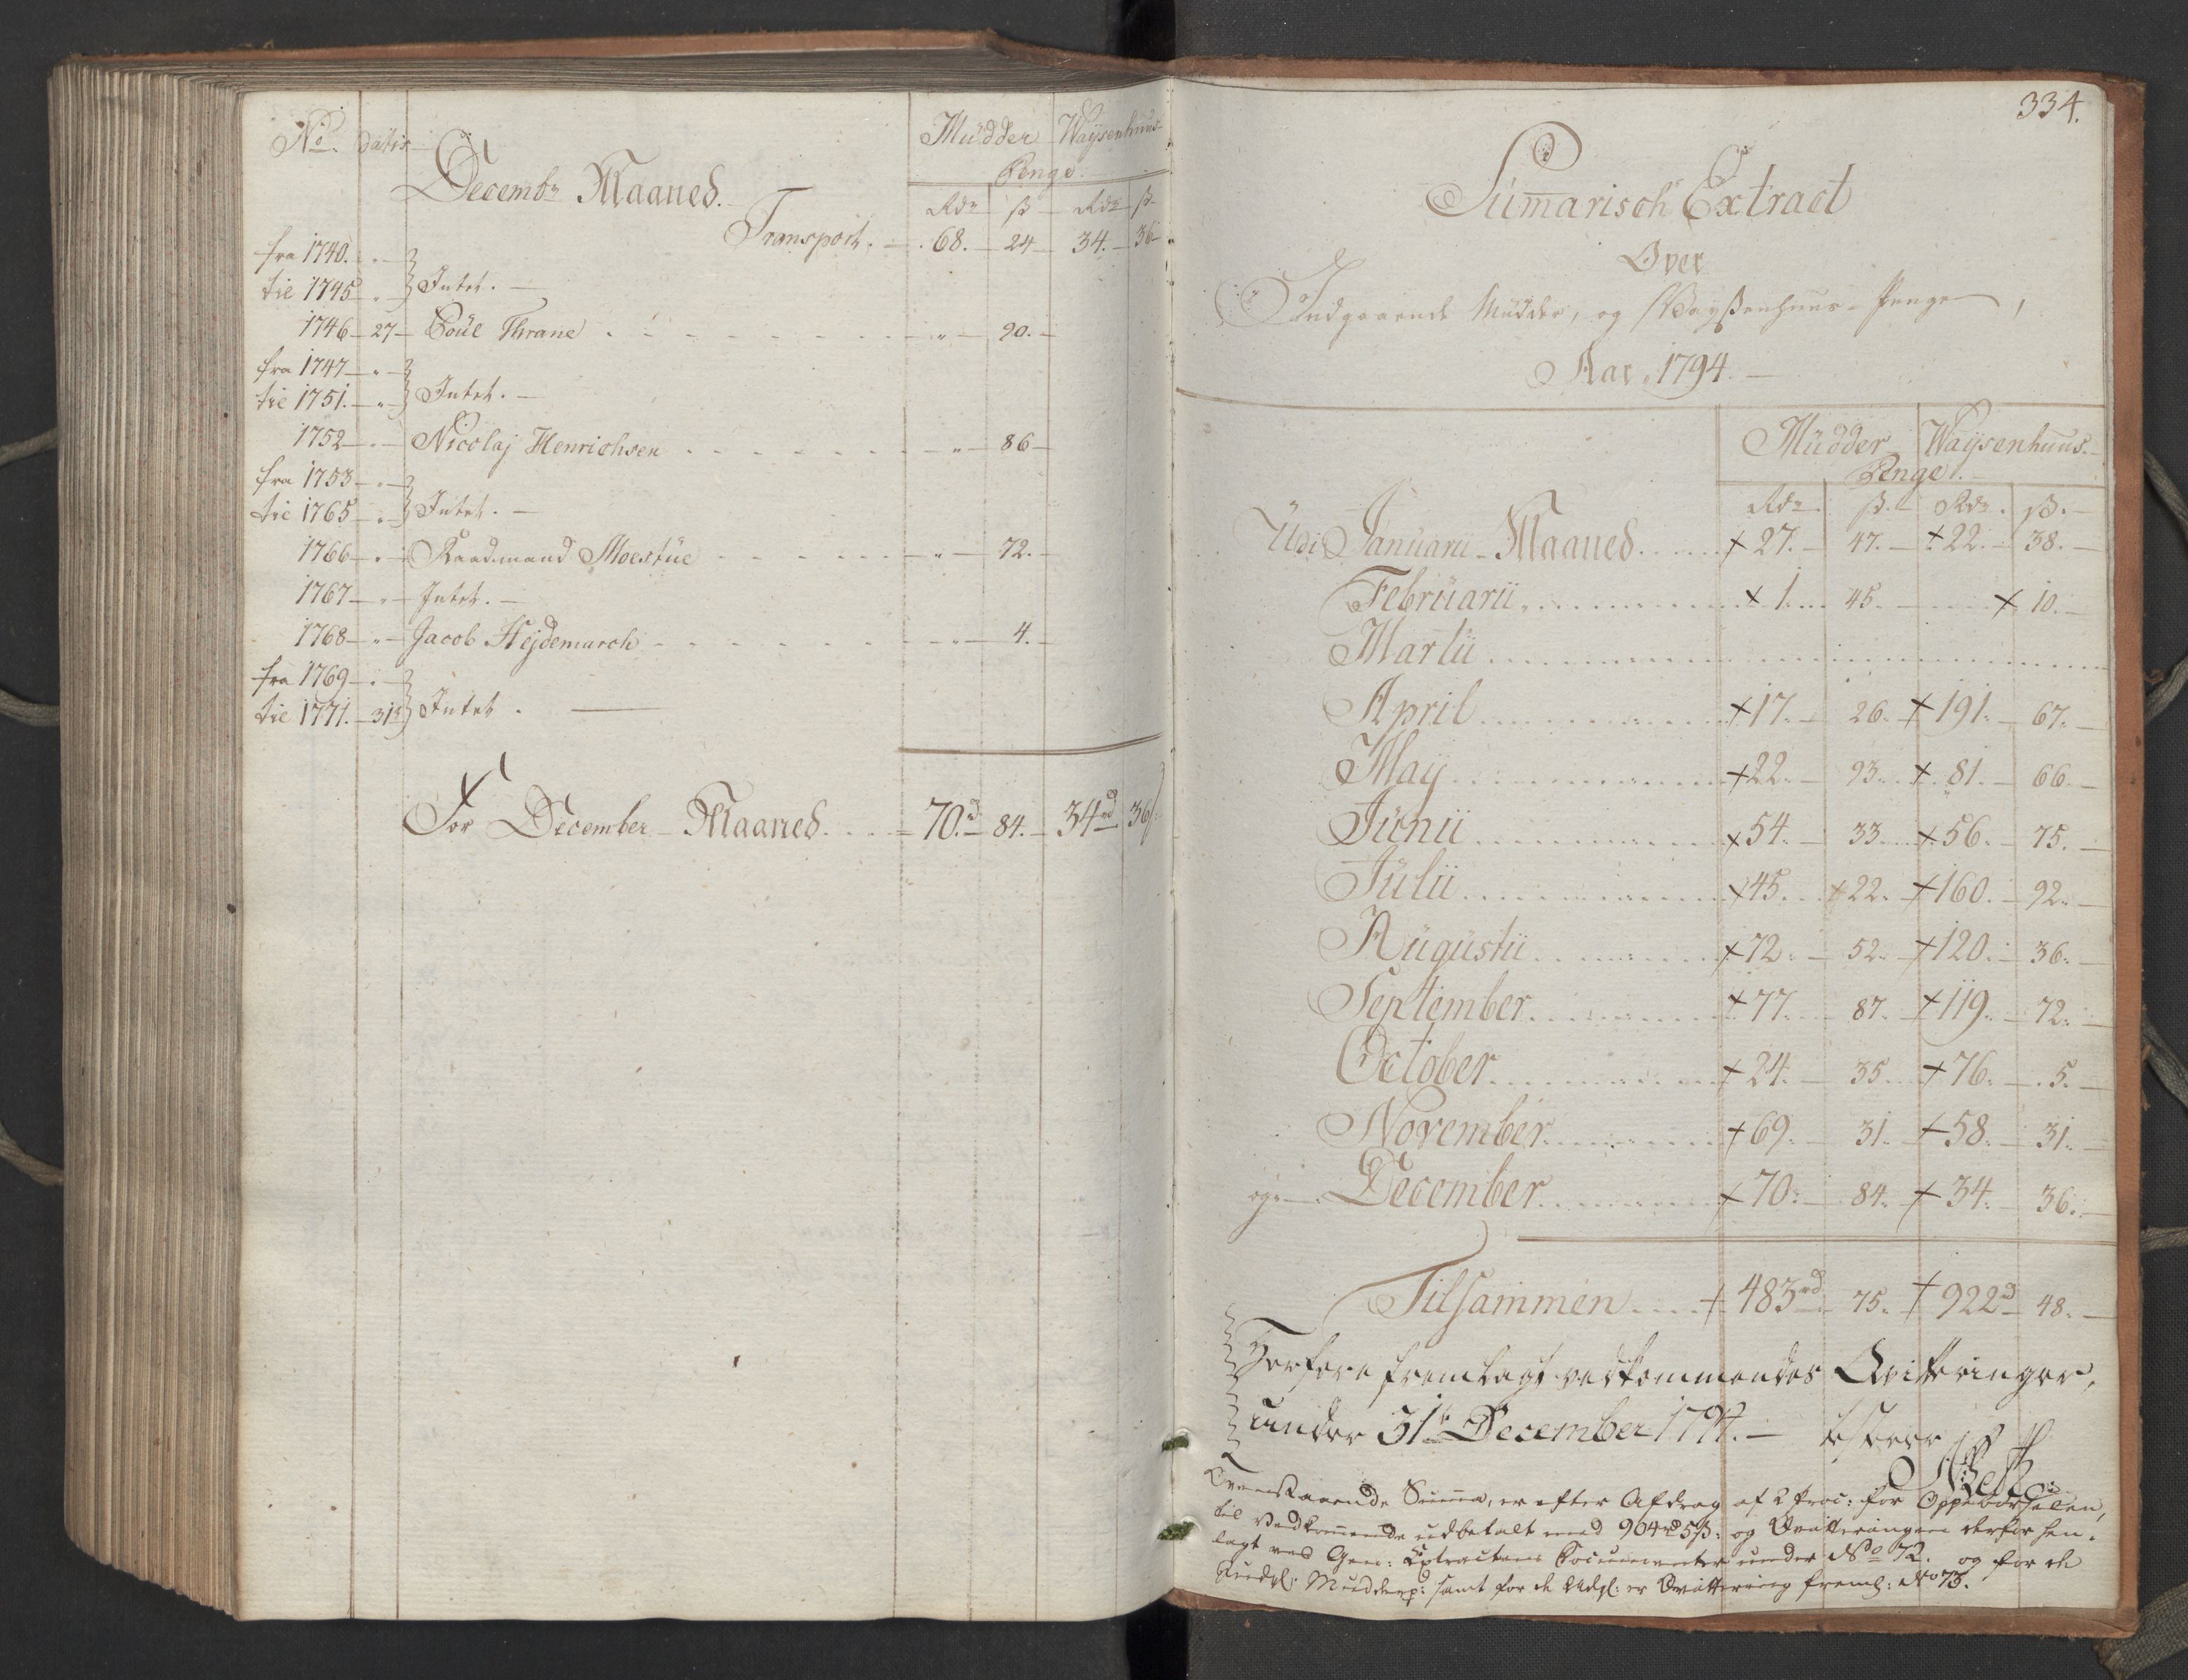 No. Datis
Decembr Maaned.
Mudder Waysenhuus
Penge
Rdr ß Rdr ß
Transport. 68. 24 34. 36
fra 1740.
til 1745 Intet.
1746 27 Poul Thrane 90.
fra 1747
til 1751. Intet.
1752 Nicolaj Henrichsen 86
fra 1753
til 1765 Intet.
1766 Raadmand Moestue 72.
1767 Intet.
1768 Jacob Hejdemarch 4.
fra 1769
til 1771. 31 Intet.
For December Maaned 70.rd 84. 34rd 36
334.
Sum̄arisch Extract
Over
Indgaaende Mudder, og Wayßenhuus-Penge,
Aar 1794.
Mudder Waysenhuus.
Penge.
Rdr. ß. Rdr. ß.
Udi Januarii Maaned 27. 47. 22. 38.
Februarii 1. 45. 10.
Martii
April 17. 26. 191. 67.
May 22. 93. 81. 66.
Junii 54. 33. 56. 75.
Julii 45. 22. 160. 92.
Augustii 72. 52. 120. 36.
September 77. 87. 119. 72.
October 24. 35. 76. 5.
November 69. 31. 58. 31.
og December 70. 84. 34. 36.
Tilsammen 483rd 75. 922rd 48.
fremlagt vedkommendes Qvitteringer,
under 31te December 1794.
Ovenstaaende Summa, er efter Afdrag af 2 Proc: for Oppebørselen,
til Vedkommende udbetalt med 904rd 5ß: og Qvitteringen derfor hen-
lagt ved Gen: Extractens Documenter under No 72. og for de
Mudderp: samt for de er Qvittering freml: No 73.